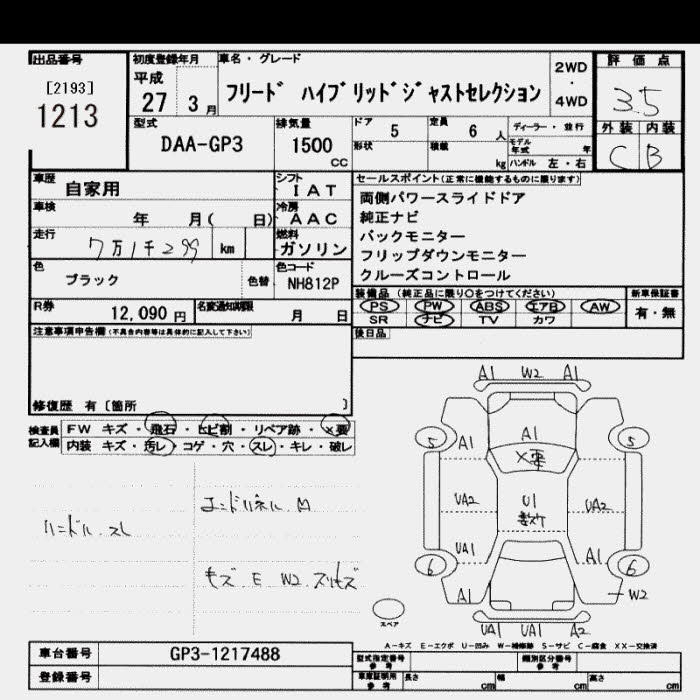 出品番号
[2193]
1213
初度登録年月
平成
27 3月
車名・グレード
フリード ハイブリッドジャストセレクション
2WD
・
4WD
評価点
3.5
外装 内装
C B
型式
DAA-GP3
排気量
1500
CC
ドア 5
定員 6 人
形状
積載 kg
ディーラー・並行
モデル年式 年
ハンドル 左・右
車歴
自家用
シフト
IAT
車検
年 月( 日)
冷房
AAC
走行
7万1千299 km
燃料
ガソリン
色
ブラック
色替
色コード
NH812P
R券
12,090 円
名変通知期限
月 日
セールスポイント(正常に機能するものに限ります)
両側パワースライドドア
純正ナビ
バックモニター
フリップダウンモニター
クルーズコントロール
装備品 (純正品に限り○をつけてください)
PS PW ABS エアB AW
SR ナビ TV カワ
新車保証書
有・無
後日品
注意事項申告欄(不具合内容等は具体的に記入して下さい)
修復歴 有 [箇所 ]
検査員
記入欄
FW キズ・飛石・ヒビ割・リペア跡・X要
内装 キズ・汚レ・コゲ・穴・スレ・キレ・破レ
ハンドル.スレ
キズ.E W2
A1 W2 A1
5 A1 A1 5
X要
UA2 U1 UA2
UA1
A1
6 6
A1
W2
UA1 UA1 A2
スペア
A-キズ E-エクボ U-凹み W-補修跡 S-サビ C-腐食 XX-交換済
車台番号
GP3-1217488
登録番号
型式指定番号
参考
類別区分番号
参考
車庫証明用
参考
長さ cm
幅 cm
高さ cm